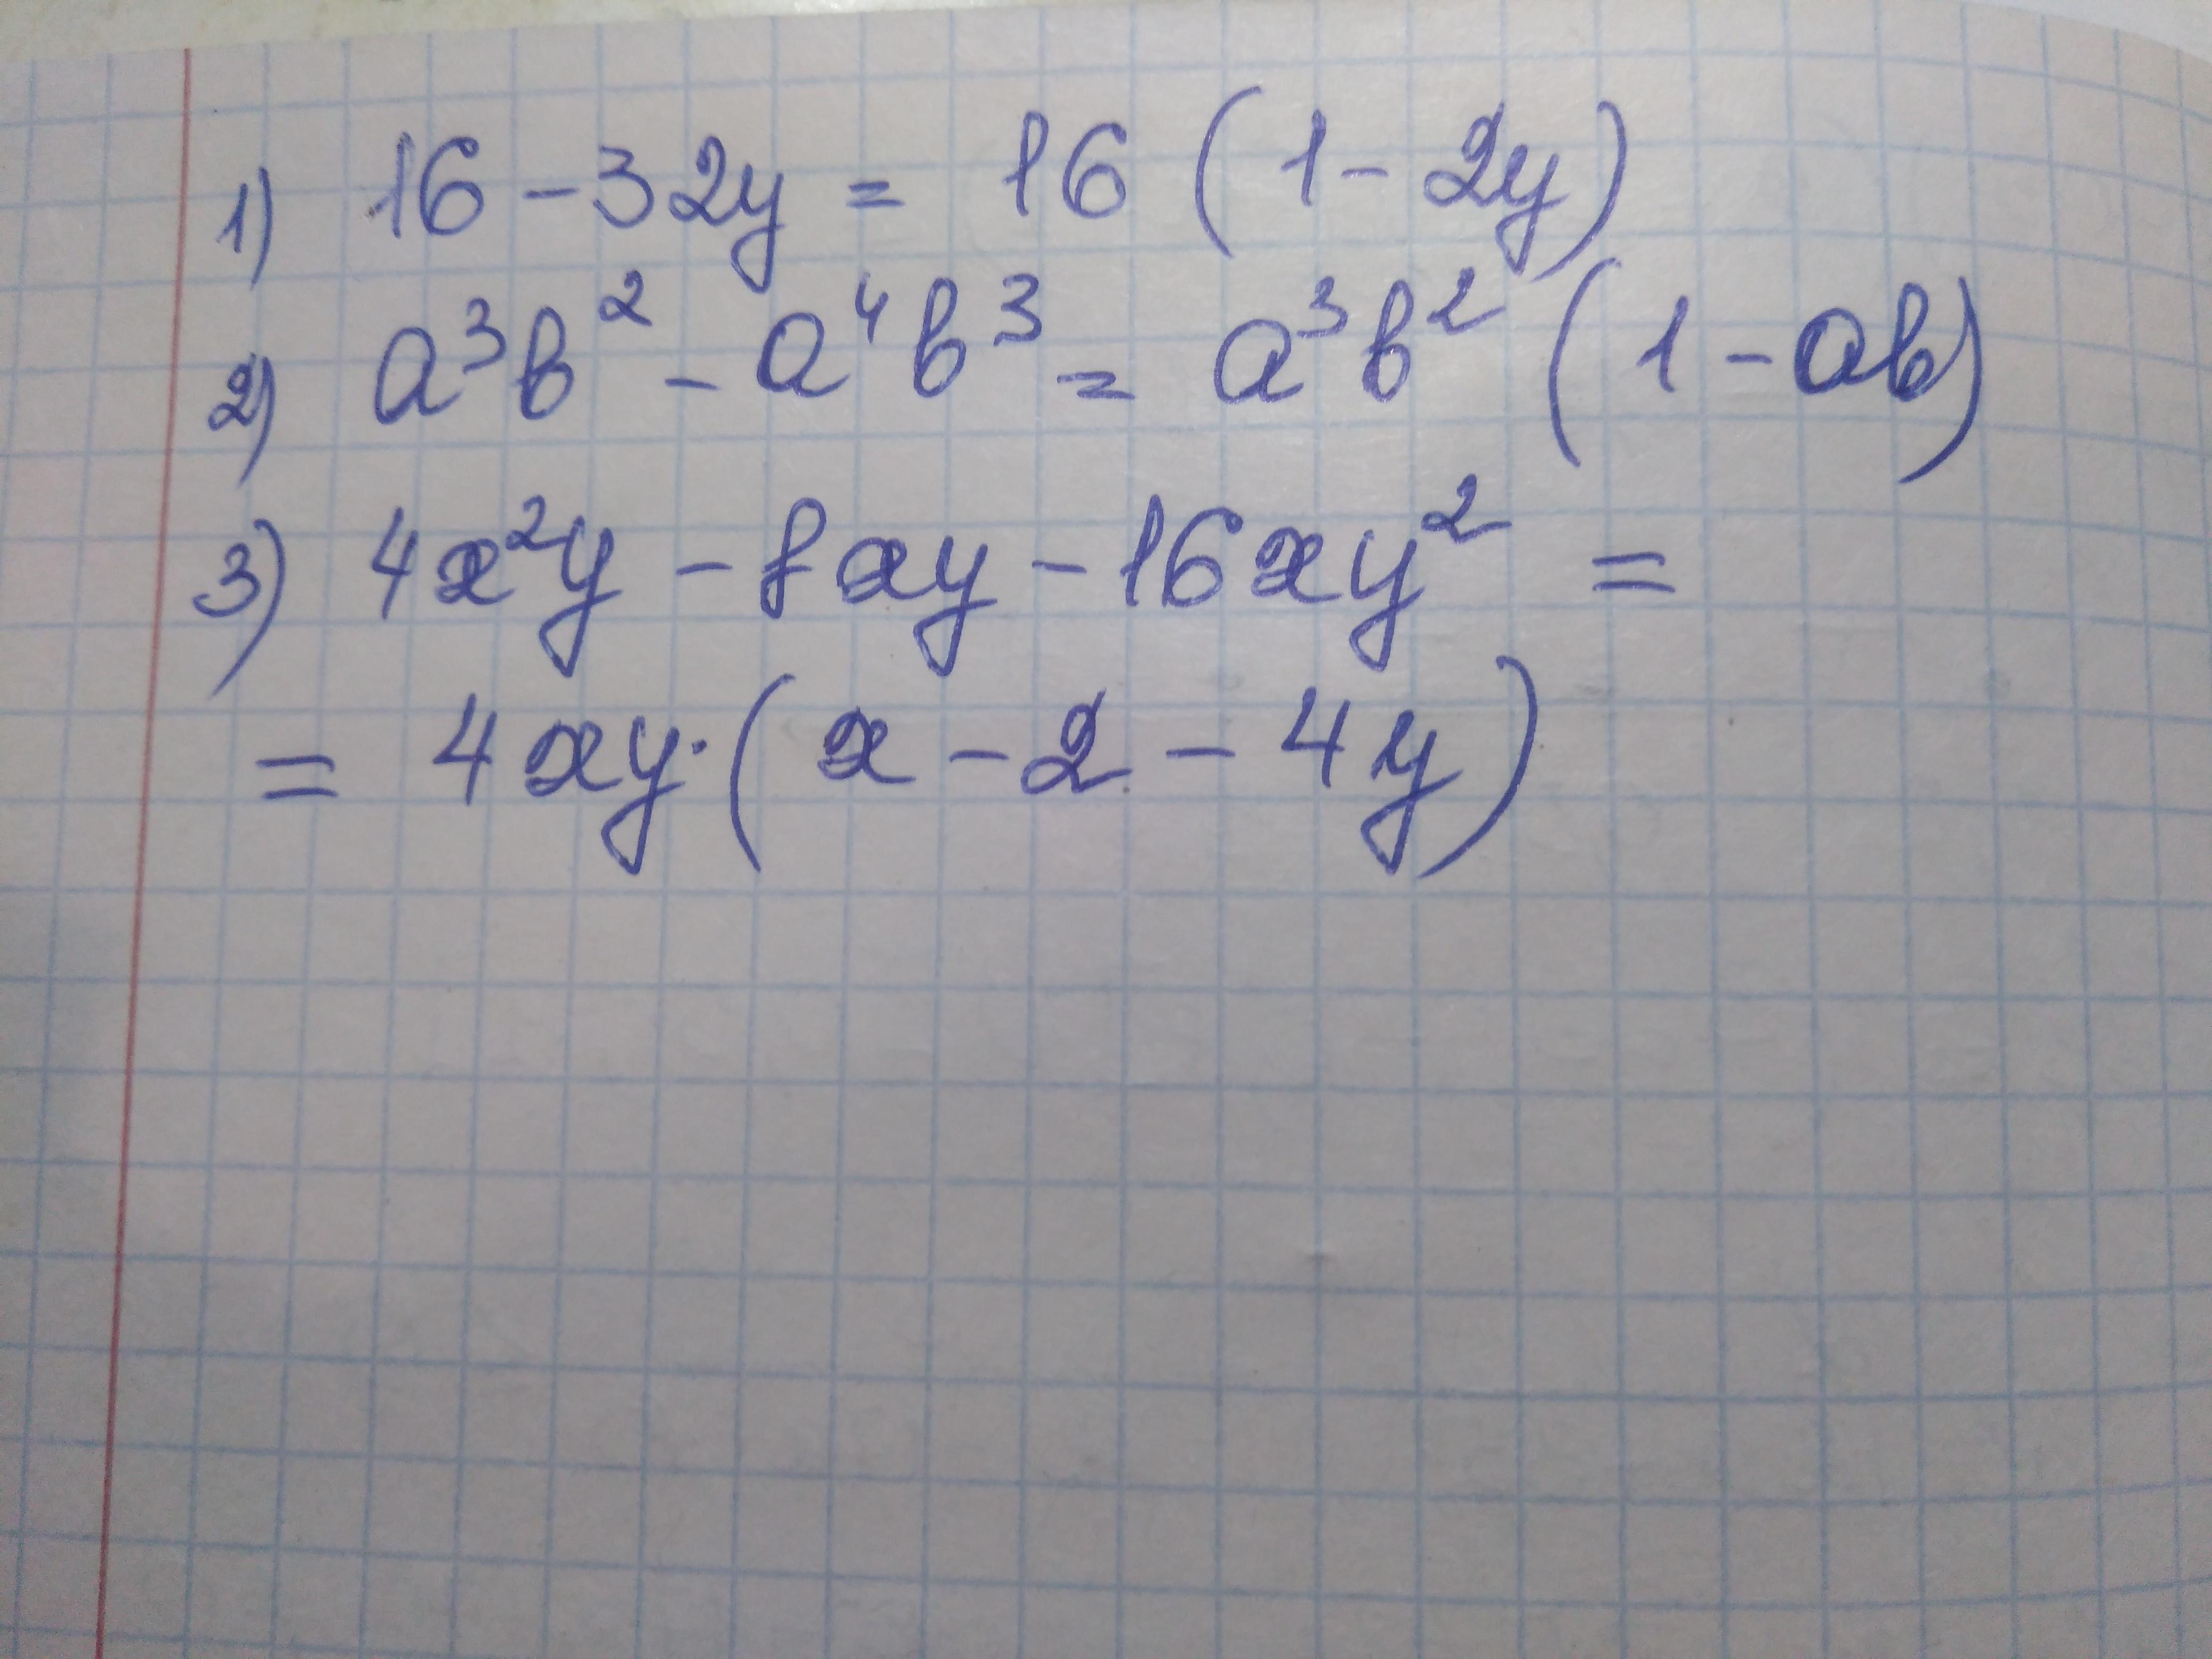 1) 16 - 32y = 16 (1 - 2y)
2) a³b² - a⁴b³ = a³b² (1 - ab)
3) 4x²y - 8xy - 16xy² =
= 4xy·(x - 2 - 4y)